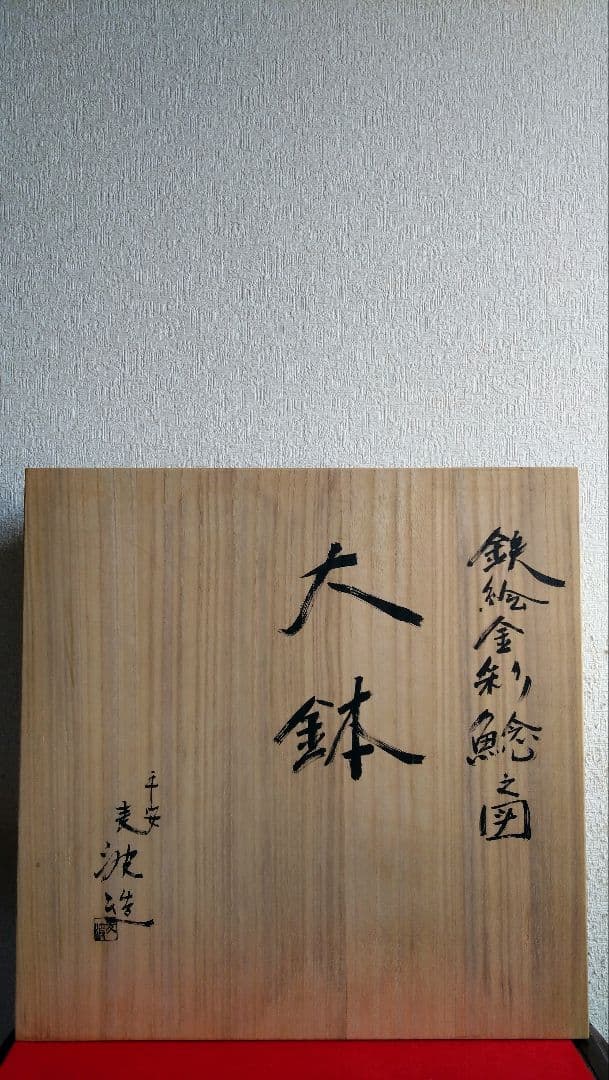 鉄絵金彩鯰之図
大鉢
平安
麦波造